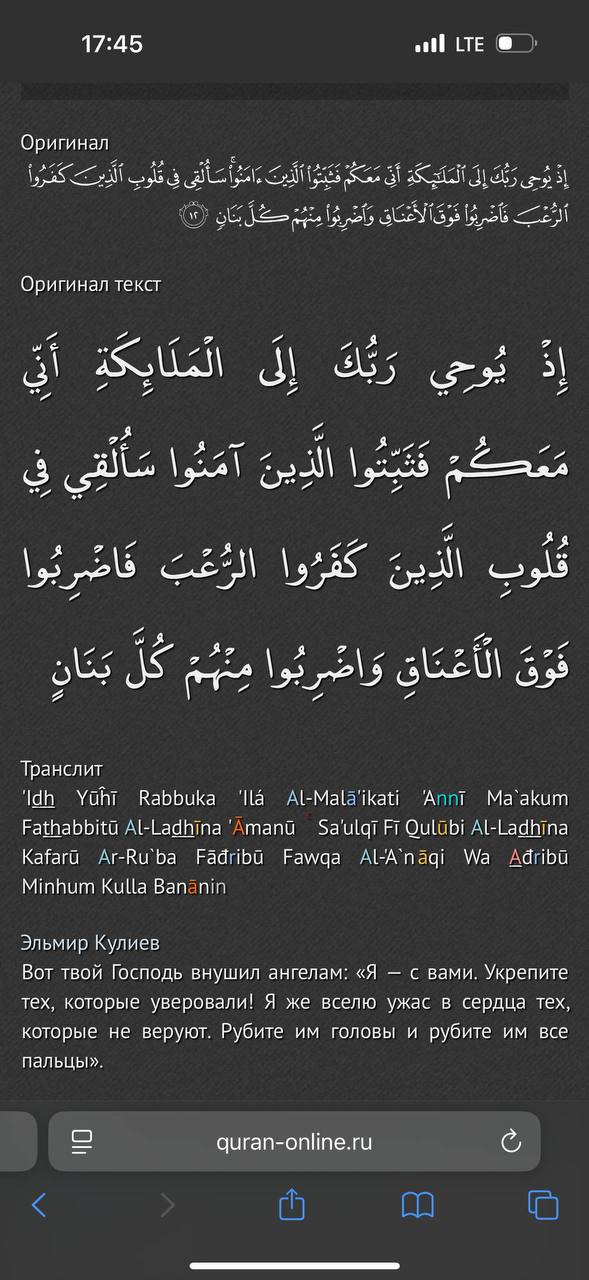 17:45
LTE
Оригинал
إِذْ يُوحِى رَبُّكَ إِلَى ٱلْمَلَـٰٓئِكَةِ أَنِّى مَعَكُمْ فَثَبِّتُوا۟ ٱلَّذِينَ ءَامَنُوا۟ ۚ سَأُلْقِى فِى قُلُوبِ ٱلَّذِينَ كَفَرُوا۟
ٱلرُّعْبَ فَٱضْرِبُوا۟ فَوْقَ ٱلْأَعْنَاقِ وَٱضْرِبُوا۟ مِنْهُمْ كُلَّ بَنَانٍ ١٢
Оригинал текст
إِذْ يُوحِي رَبُّكَ إِلَى الْمَلَائِكَةِ أَنِّي
مَعَكُمْ فَثَبِّتُوا الَّذِينَ آمَنُوا سَأُلْقِي فِي
قُلُوبِ الَّذِينَ كَفَرُوا الرُّعْبَ فَاضْرِبُوا
فَوْقَ الْأَعْنَاقِ وَاضْرِبُوا مِنْهُمْ كُلَّ بَنَانٍ
Транслит
'Idh Yūĥī Rabbuka 'Ilá Al-Malā'ikati 'Annī Ma`akum
Fathabbitū Al-Ladhīna 'Āmanū Sa'ulqī Fī Qulūbi Al-Ladhīna
Kafarū Ar-Ru`ba Fāđribū Fawqa Al-'A`nāqi Wa Ađribū
Minhum Kulla Banānin
Эльмир Кулиев
Вот твой Господь внушил ангелам: «Я — с вами. Укрепите
тех, которые уверовали! Я же вселю ужас в сердца тех,
которые не веруют. Рубите им головы и рубите им все
пальцы».
quran-online.ru